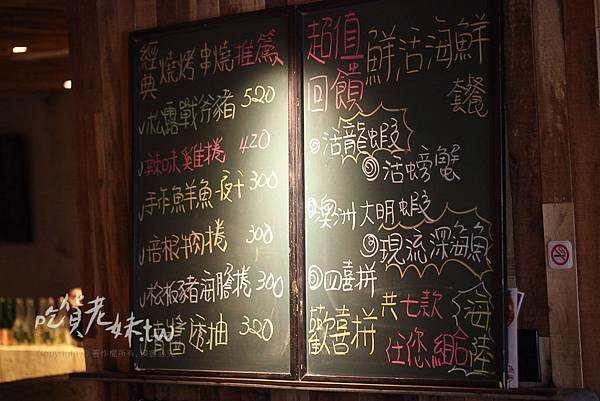 經典燒烤串燒推薦
松露戰斧豬 520
辣味雞捲 420
手作鮮羊魚疲干 300
培根牛肉捲 300
松板豬海膽捲 300
醬透抽 320
超值回饋
鮮活海鮮套餐
活龍蝦
活螃蟹
澳洲大明蝦
現流深海魚
四喜拼
歡喜拼
共七款任您組合
海陸
吃貨老妹.tw